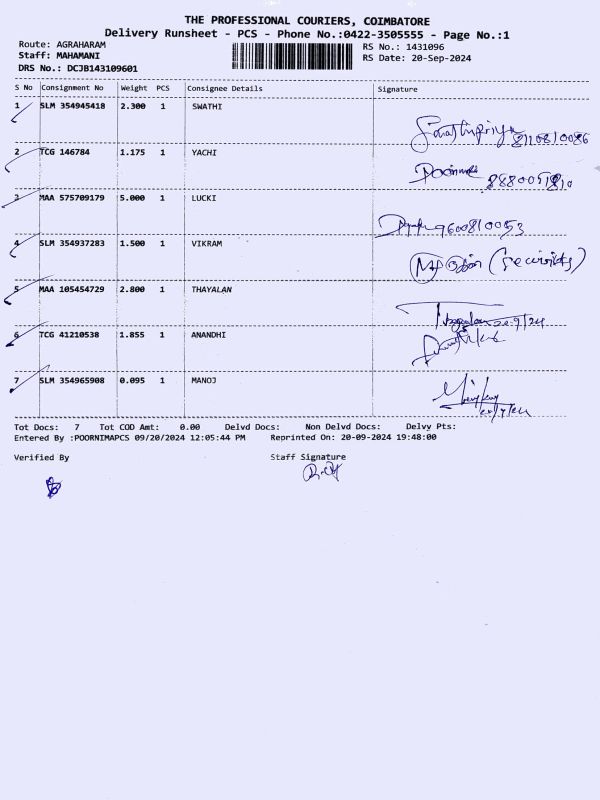 THE PROFESSIONAL COURIERS, COIMBATORE
Delivery Runsheet - PCS - Phone No.:0422-3505555 - Page No.:1
Route: AGRAHARAM RS No.: 1431096
Staff: MAHAMANI RS Date: 20-Sep-2024
DRS No.: DCJB143109601
S No Consignment No Weight PCS Consignee Details Signature
1 SLM 354945418 2.300 1 SWATHI
2 TCG 146784 1.175 1 YACHI
3 MAA 575709179 5.000 1 LUCKI
9600810053
4 SLM 354937283 1.500 1 VIKRAM
5 MAA 105454729 2.800 1 THAYALAN
6 TCG 41210538 1.855 1 ANANDHI
7 SLM 354965908 0.095 1 MANOJ
Tot Docs: 7 Tot COD Amt: 0.00 Delvd Docs: Non Delvd Docs: Delvy Pts:
Entered By :POORNIMAPCS 09/20/2024 12:05:44 PM Reprinted On: 20-09-2024 19:48:00
Verified By Staff Signature